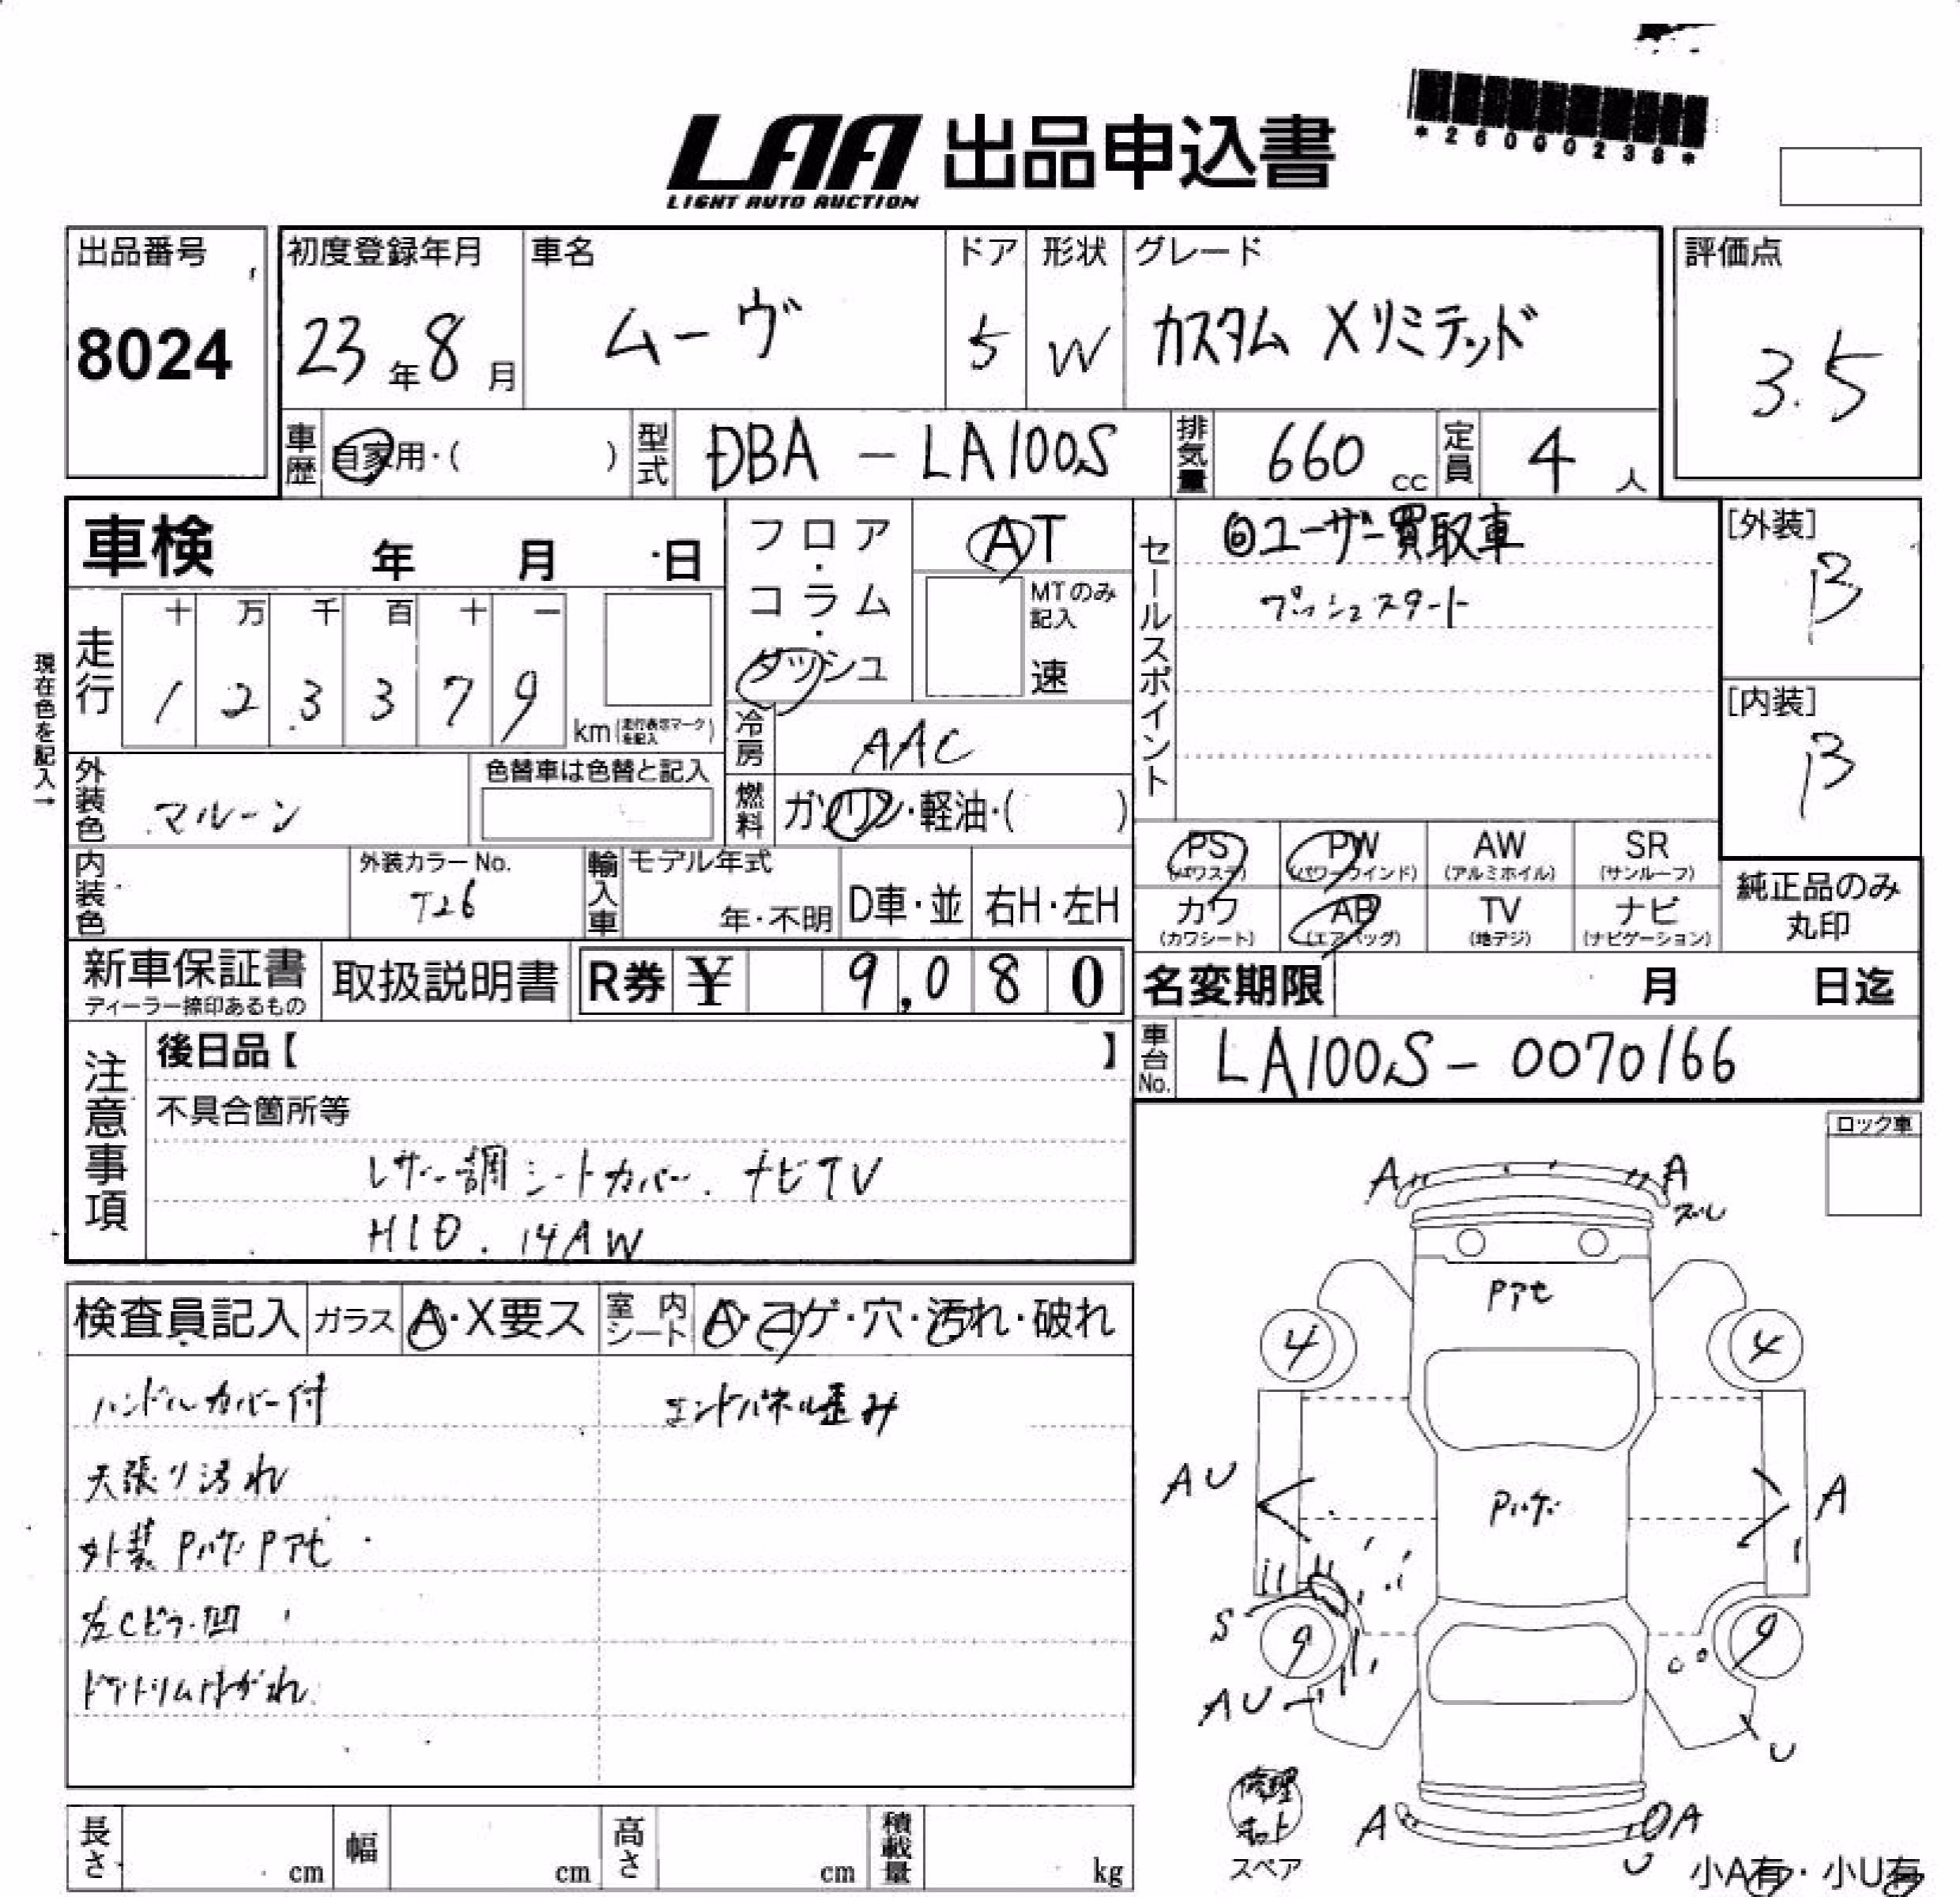 *26000238*
LAA 出品申込書
LIGHT AUTO AUCTION
出品番号
8024
初度登録年月
23年8月
車名
ムーヴ
ドア
5
形状
W
グレード
カスタム Xリミテッド
評価点
3.5
車歴
自家用・( )
型式
DBA - LA100S
排気量
660 cc
定員
4 人
車検 年 月 日
フロア・コラム・ダッシュ
AT
MTのみ記入
速
セールスポイント
◎ユーザー買取車
プッシュスタート
[外装]
B
[内装]
B
現在色を記入→
走行
十 万 千 百 十 一
1 2 3 3 7 9
km(走行表示マークを記入)
冷房
AAC
外装色
マルーン
色替車は色替と記入
燃料
ガソリン・軽油・( )
PS (パワステ)
PW (パワーウインド)
AW (アルミホイル)
SR (サンルーフ)
カワ (カワシート)
AB (エアバッグ)
TV (地デジ)
ナビ (ナビゲーション)
純正品のみ
丸印
内装色
外装カラーNo.
T26
輸入車
モデル年式
年・不明
D車・並
右H・左H
新車保証書
ディーラー捺印あるもの
取扱説明書
R券 ¥ 9,080
名変期限 月 日迄
車台No.
LA100S - 0070166
注意事項
後日品【 】
不具合箇所等
レザー調シートカバー. ナビTV
HID. 14AW
ロック車
検査員記入
ガラス
A・X要ス
室内シート
A・コゲ・穴・汚れ・破れ
ハンドルカバー付
エンドパネル歪み
天張り汚れ
外装 Pハゲ Pアセ
左Cピラー凹
ドアトリムはがれ
A
A
ズレ
Pアセ
4
4
AU
Pハゲ
A
S
9
9
AU
U
修理キット
スペア
A
A
U
小A有・小U有
長さ cm
幅 cm
高さ cm
積載量 kg